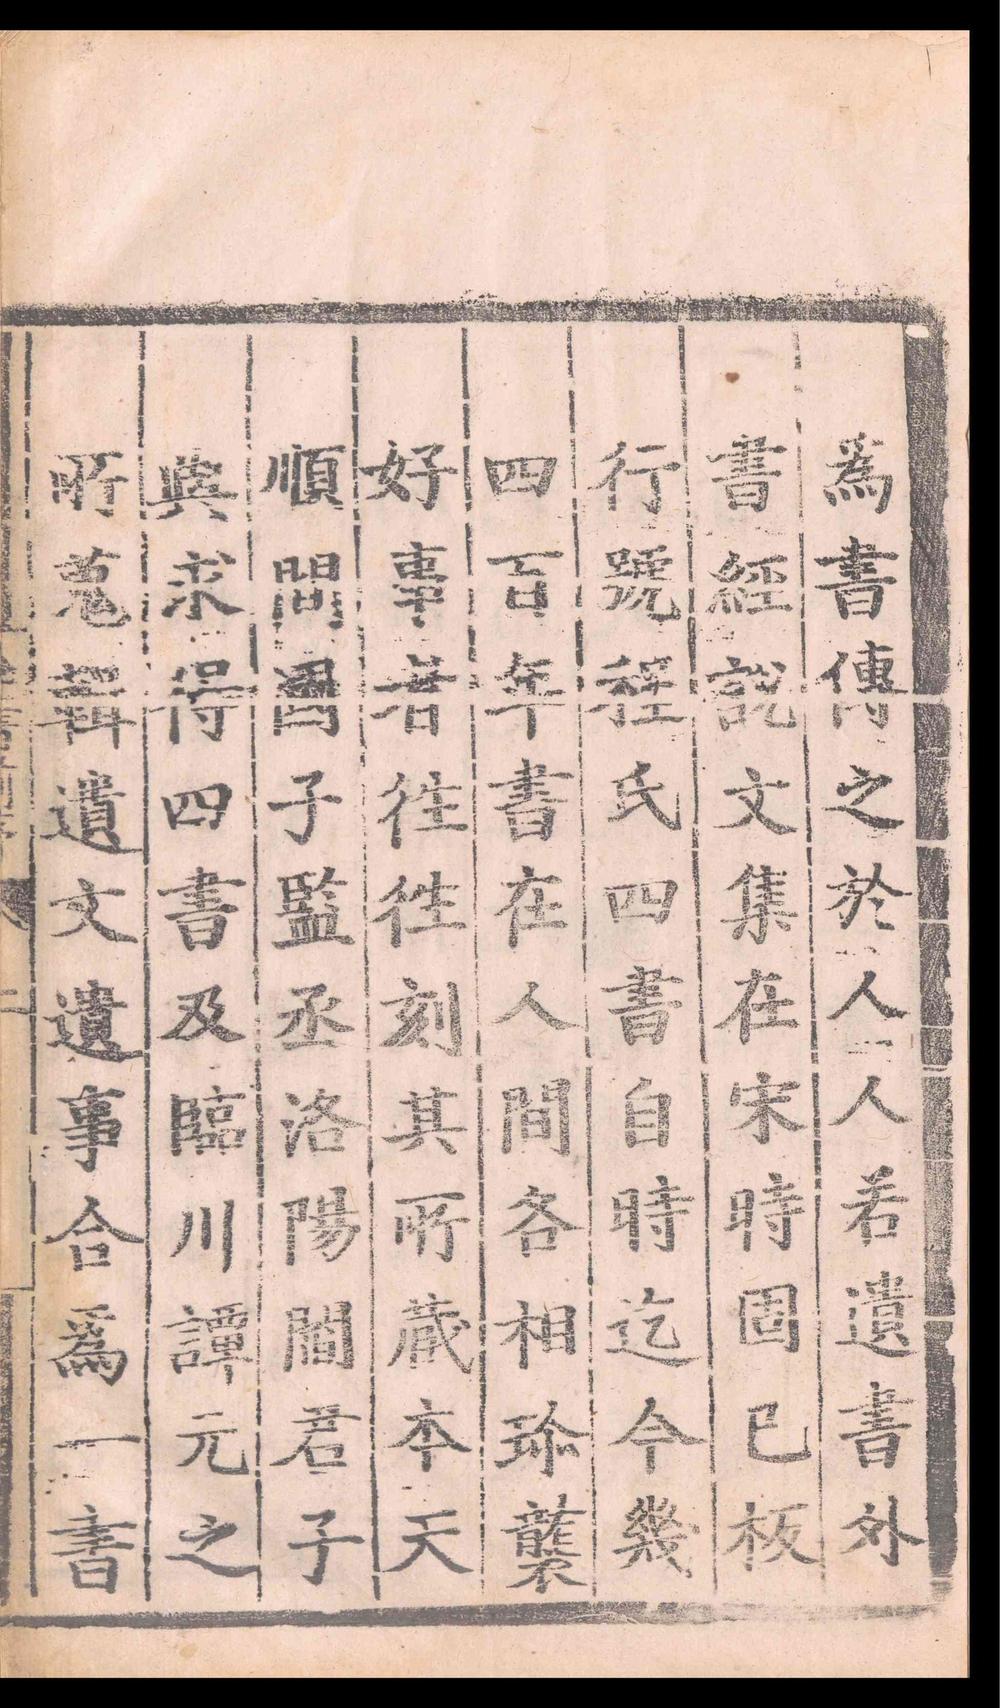 為書傳之於人人若遺書外
書經說文集在宋時固已板
行號程氏四書自時迄今幾
四百年書在人間各相珎襲
好事者徃徃刻其所藏本天
順間國子監丞洛陽閻君子
與求得四書及臨川譚元之
所蒐輯遺文遺事合爲一書